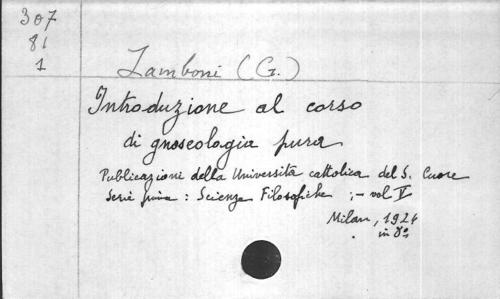 307
81
1
Zamboni (G.)
Introduzione al corso
di gnoseologia pura
Publicazioni della Università cattolica del S. Cuore
Serie prima : Scienze Filosofiche ; - vol V
Milan, 1924
in 8º